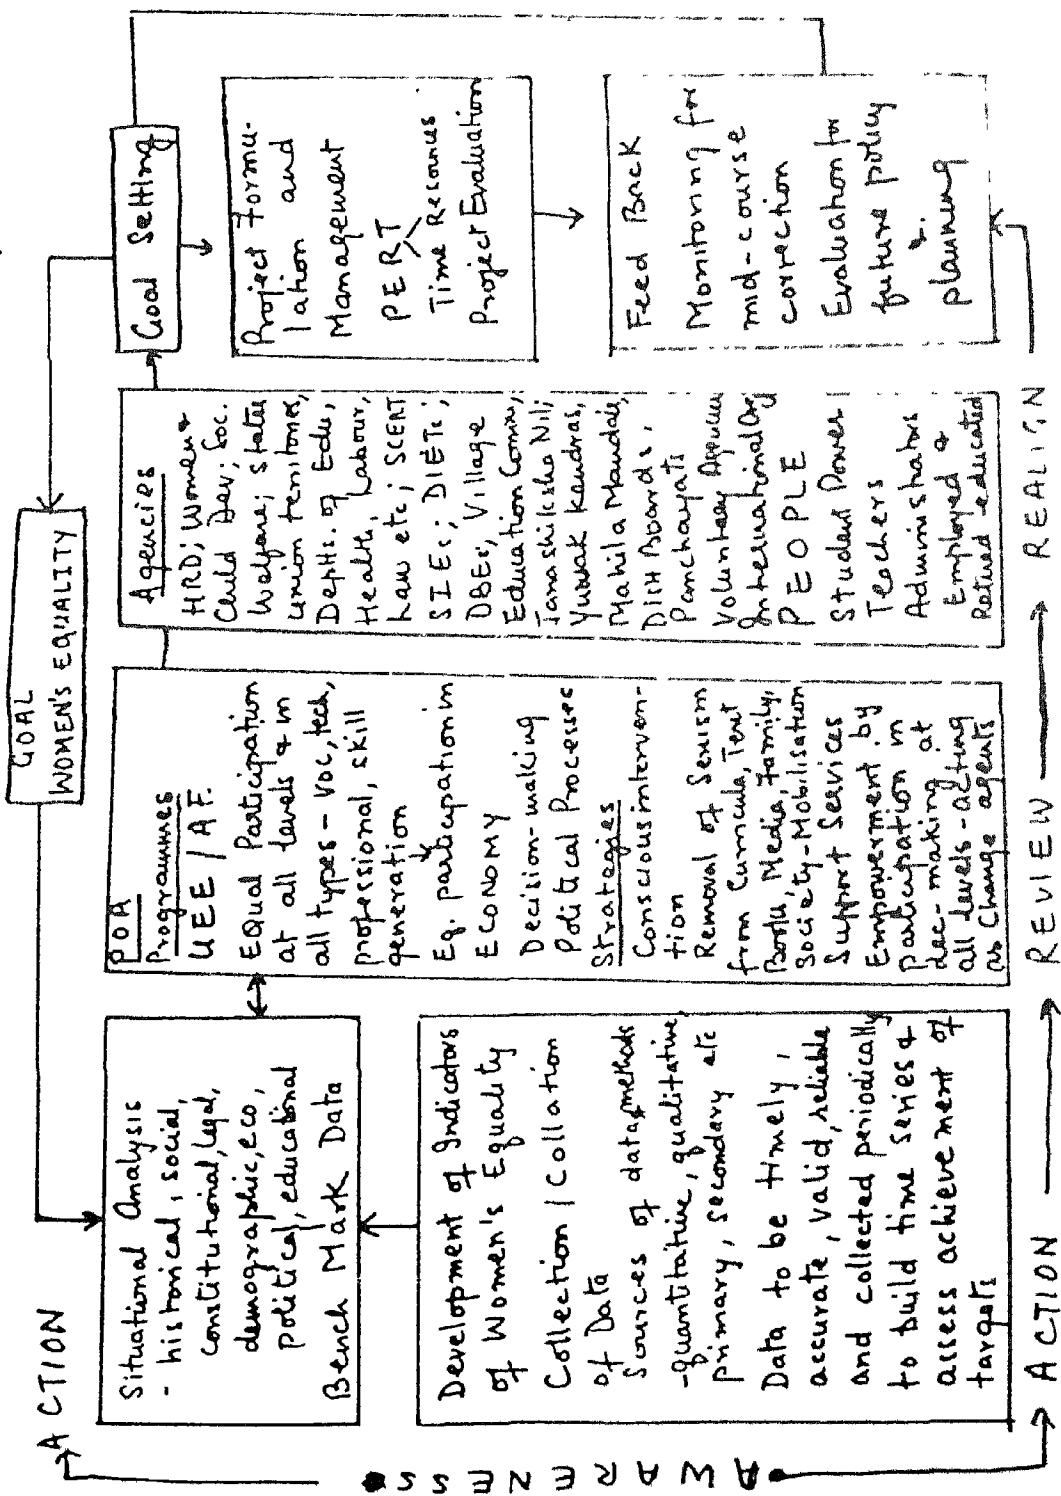 GOAL
WOMEN'S EQUALITY
ACTION
AWARENESS
Situational Analysis
- historical, social,
constitutional, legal,
demographic, eco,
political, educational
Bench Mark Data
Development of Indicators
of Women's Equality
Collection / Collation
of Data
Sources of data & methods
-quantitative, qualitative,
primary, secondary etc
Data to be timely,
accurate, valid, reliable
and collected periodically
to build time series &
assess achievement of
targets
POA
Programmes
UEE / AF.
Equal Participation
at all levels & in
all types - Voc, tech,
professional, skill
generation
Eq. participation in
ECONOMY
Decision-making
Political Processes
Strategies
Conscious interven-
tion
Removal of Sexism
from Curricula, Text
Books, Media, Family,
Society-Mobilisation
Support Services
Empowerment by
participation in
dec-making at
all levels - acting
as Change agents
Agencies
HRD; Women &
Child Dev; Soc.
Welfare; States
union territories,
Deptts. of Edu,
Health, Labour,
Law etc; SCERT
SIEs; DIETs;
DBEs, Village
Education Comm,
Janashiksha Nil;
Yuvak Kendras,
Mahila Mandals,
Distt Boards,
Panchayats
Voluntary Agencies
International Org
PEOPLE
Student Power
Teachers
Administrators
Employed &
Retired educated
Goal Setting
Project Formu-
lation and
Management
PERT
Time Resources
Project Evaluation
Feed Back
Monitoring for
mid-course
correction
Evaluation for
future policy
&
planning
ACTION REVIEW REALIGN